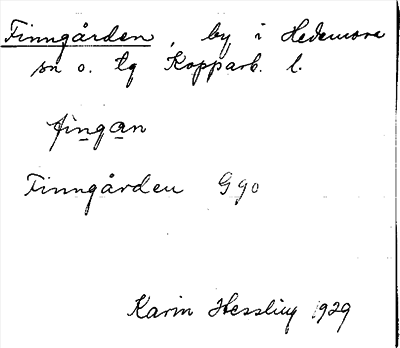 Finngården, by i Hedemora
sn o. tg Kopparb. l.
fingan
Finngården Ggo
Karin Hessling 1929